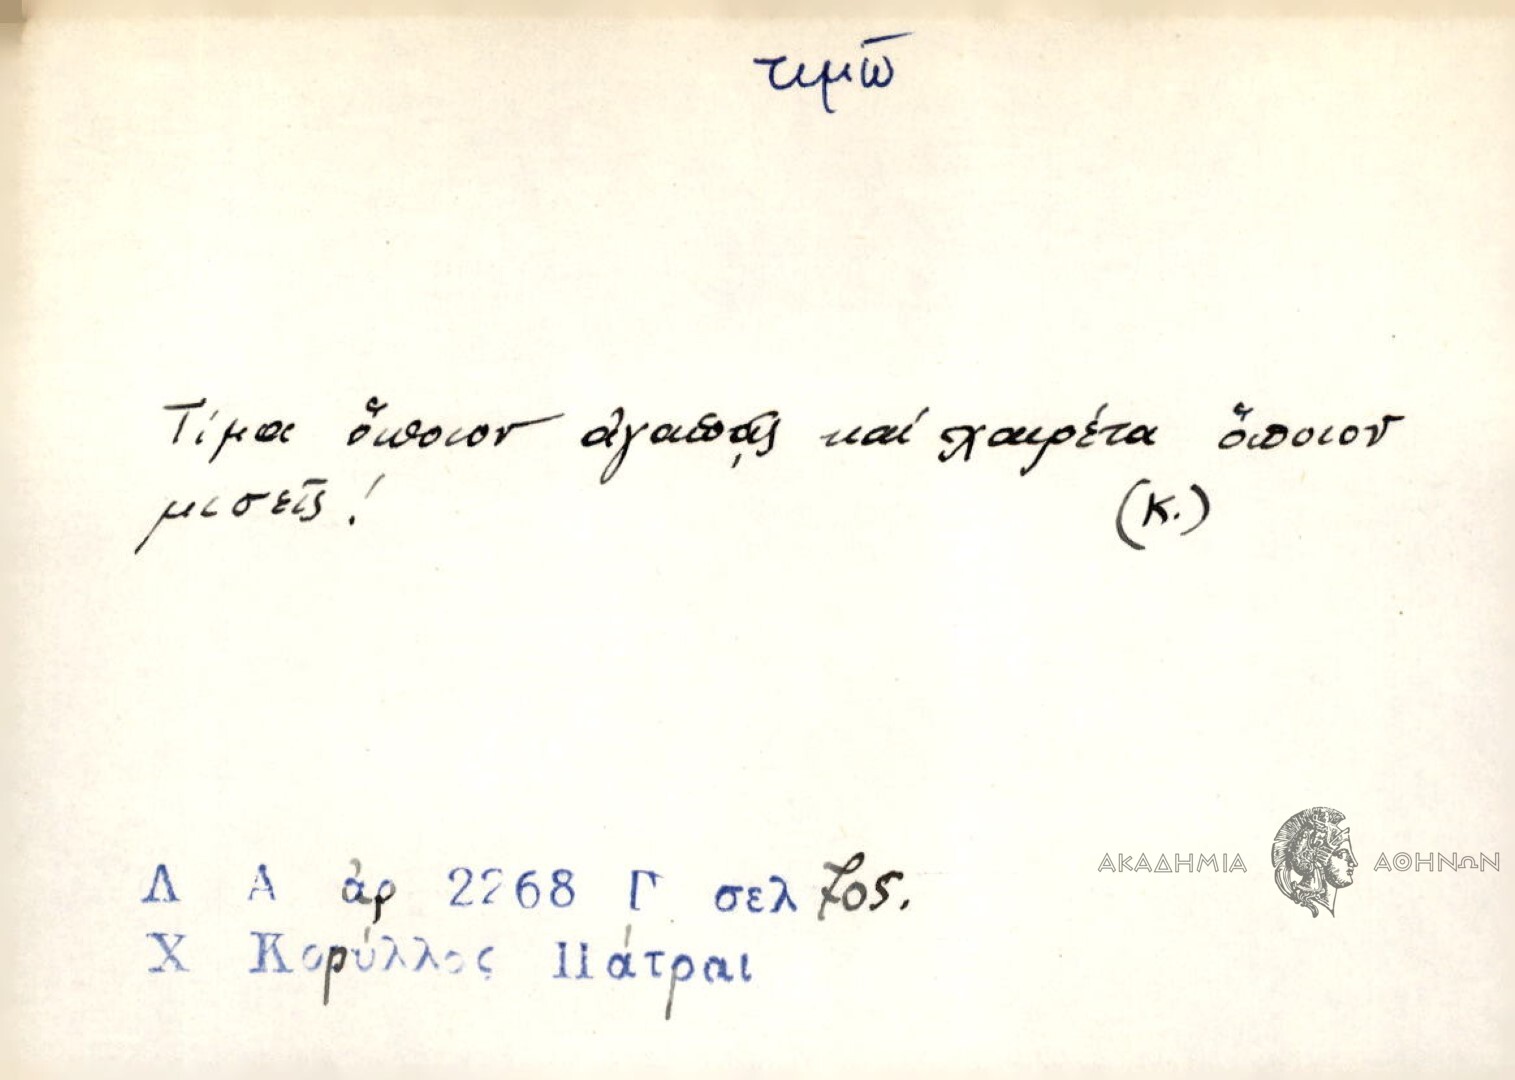 τιμῶ
Τίμα ὅποιον ἀγαπᾷς καί χαιρέτα ὅποιον
μισεῖς! (Κ.)
ΑΚΑΔΗΜΙΑ ΑΘΗΝΩΝ
Λ Α ἀρ 2268 Γ σελ 705.
Χ Κορύλλος Πάτραι